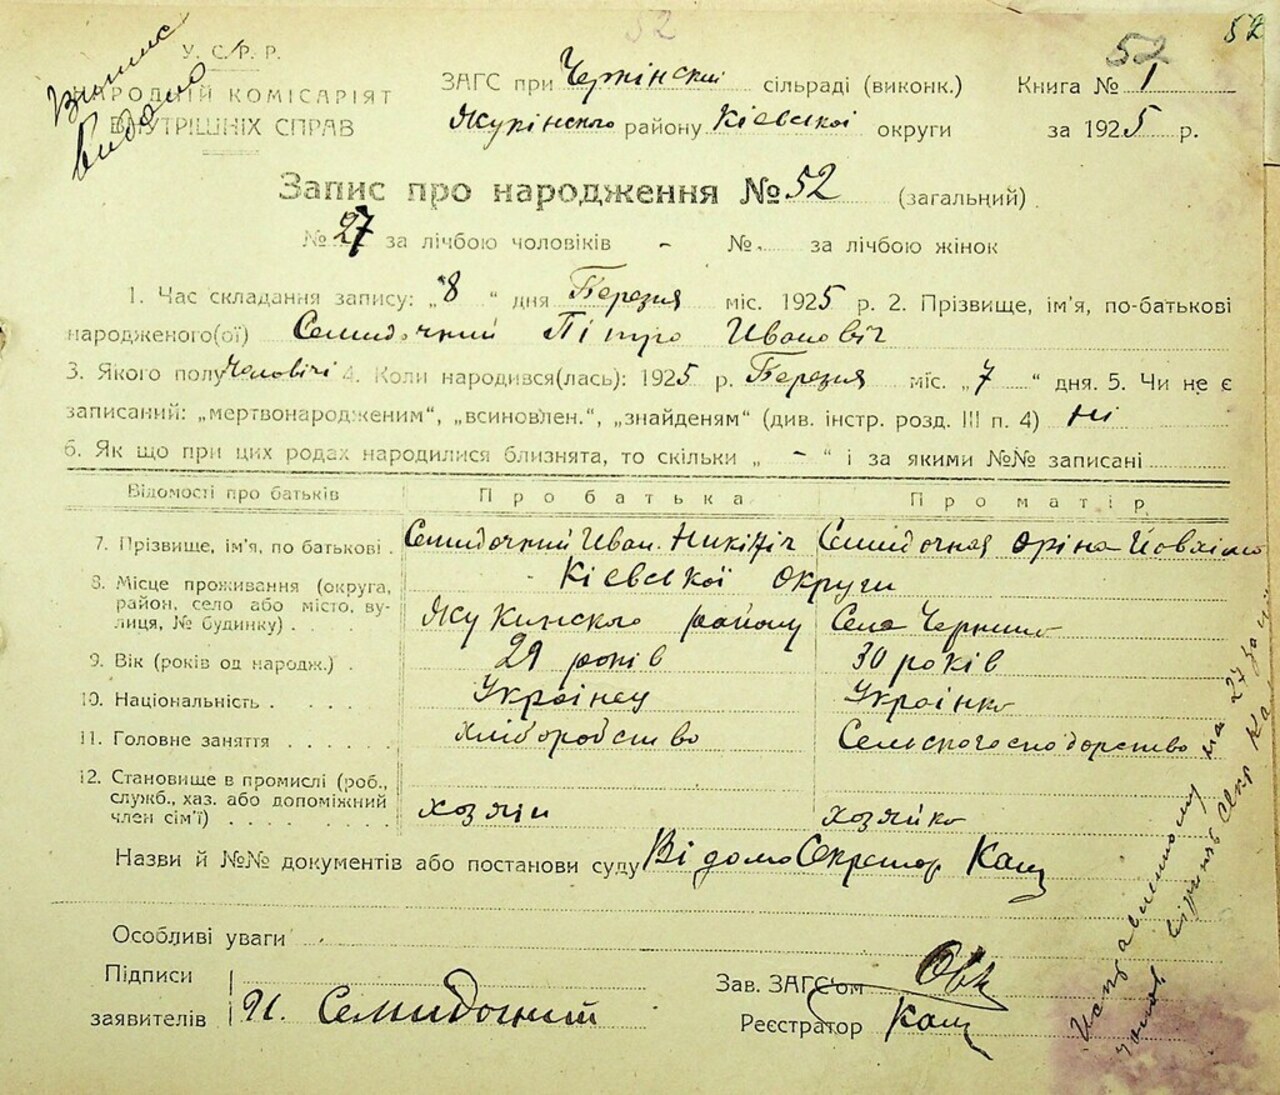 52
52
52
Витис
видано
У. С. Р. Р.
НАРОДНІЙ КОМІСАРІЯТ
ВНУТРІШНІХ СПРАВ
ЗАГС при Чернінский сільраді (виконк.)
Книга № 1
району Кіевскоі округи
за 1925 р.
Запис про народження № 52 (загальний)
№ 27 за лічбою чоловіків - № за лічбою жінок
1. Час складання запису: „8“ дня Березня міс. 1925 р. 2. Прізвище, ім'я, по-батькові
народженого(ої) Семидочний Пітро Иванович
3. Якого полу Чоловічі 4. Коли народився(лась): 1925 р. Березня міс. „7“ дня. 5. Чи не є
записаний: „мертвонародженим“, „всиновлен.“, „знайденям“ (див. інстр. розд. III п. 4) Ні
6. Як що при цих родах народилися близнята, то скільки „ - “ і за якими №№ записані
Відомості про батьків Про батька Про матір
7. Прізвище, ім'я, по батькові . Семидочний Иван. Никітіч Семидочная Оріна
8. Місце проживання (округа, Кіевскоі Округи
район, село або місто, ву-
лиця, № будинку) . району Село Чернино
9. Вік (років од народж.) . 29 років 30 років
10. Національність . Украінец Украінка
11. Головне заняття . хліборобство
12. Становище в промислі (роб.,
служб., хаз. або допоміжний
член сім'ї) . хозяін хозяйка
Назви й №№ документів або постанови суду Відомо Секретар Кащ
Особливі уваги
Підписи
заявителів И. Семидочний
Зав. ЗАГС'ом
Реєстратор Кащ
Исправленному на 27